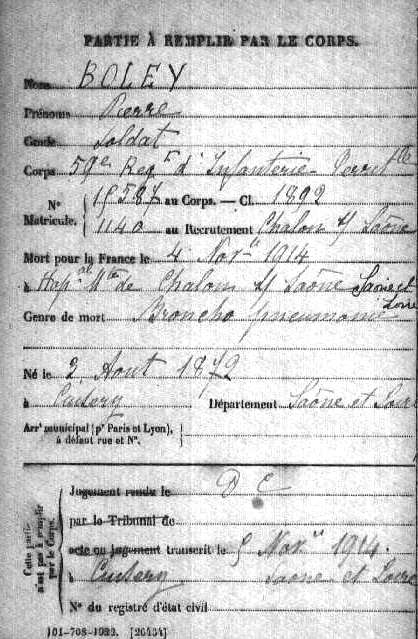 PARTIE À REMPLIR PAR LE CORPS.
Nom BOLEY
Prénoms Pierre
Grade Soldat
Corps 59e Regt d'Infanterie Territle
N° Matricule. 15587 au Corps. — Cl. 1892
1140 au Recrutement Chalon s/ Saône
Mort pour la France le 4 Novre 1914
à Hopal Mre de Chalon s/ Saône Saône et Loire
Genre de mort Broncho pneumonie
Né le 2 Aout 1872
à Cuisery Département Saône et Loire
Arrt municipal (pr Paris et Lyon),
à défaut rue et N°.
Cette partie n'est pas à remplir par le Corps.
Jugement rendu le D C
par le Tribunal de
acte ou jugement transcrit le 5 Novre 1914
à Cuisery Saône et Loire
N° du registre d'état civil
101-708-1922. [26434]